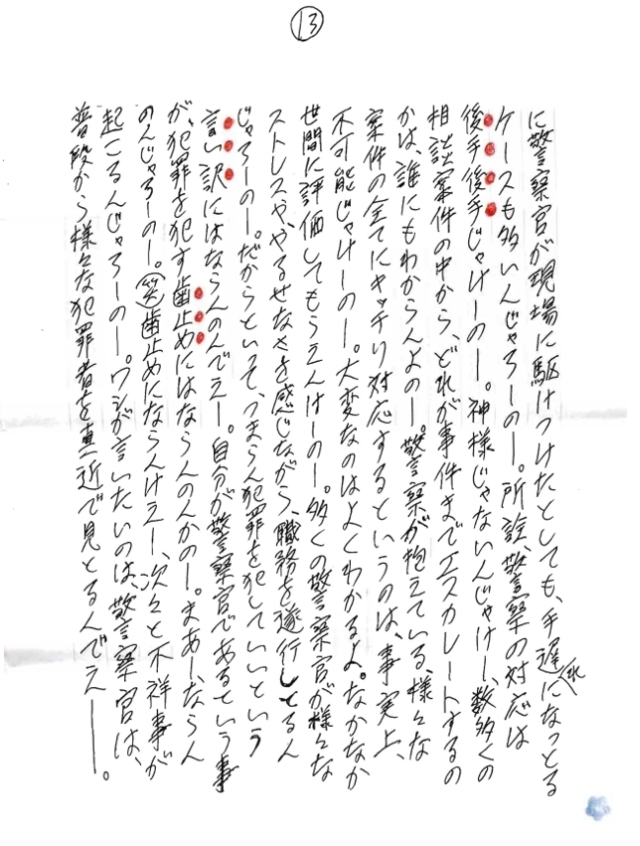 ⑬
に警察官が現場に駆けつけたとしても、手遅れになっとる
ケースも多いんじゃろーのー。所詮、警察の対応は
後手後手じゃけーのー。神様じゃないんじゃけー、数多くの
相談案件の中から、どれが事件までエスカレートするの
かは、誰にもわからんよのー。警察が抱えている、様々な
案件の全てにキッチリ対応するというのは、事実上、
不可能じゃけーのー。大変なのはよくわかるよ。なかなか
世間に評価してもらえんけーのー。多くの警察官が様々な
ストレスや、やるせなさを感じながら、職務を遂行しとるん
じゃろーのー。だからといって、つまらん犯罪を犯していいという
言い訳にはならんのんでえー。自分が警察官であるという事
が、犯罪を犯す歯止めにはならんのんかのー。まあー、ならん
のんじゃろーのー。(笑)歯止めにならんけえー、次々と不祥事が
起こるんじゃろーのー。ワシが言いたいのは、警察官は、
普段から様々な犯罪者を真近で見とるんでえー――。